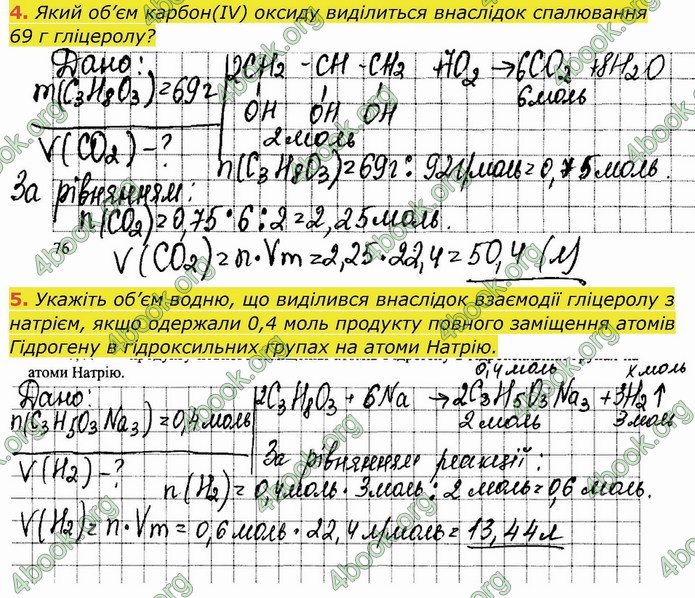 4. Який об'єм карбон(IV) оксиду виділиться внаслідок спалювання
69 г гліцеролу?
Дано:
m(C3H8O3)=69г
V(CO2)-?
2CH2 - CH - CH2 +7O2 → 6CO2 +8H2O
OH OH OH 6моль
2моль
n(C3H8O3)=69г: 92г/моль=0,75моль.
За рівнянням:
n(CO2)=0,75·6:2=2,25моль.
76
V(CO2)=n·Vm=2,25·22,4=50,4(л)
5. Укажіть об'єм водню, що виділився внаслідок взаємодії гліцеролу з
натрієм, якщо одержали 0,4 моль продукту повного заміщення атомів
Гідрогену в гідроксильних групах на атоми Натрію.
атоми Натрію.
Дано:
n(C3H5O3Na3)=0,4моль
V(H2)-?
0,4моль x моль
2C3H8O3 + 6Na → 2C3H5O3Na3 +3H2↑
2моль 3моль
За рівнянням реакції:
n(H2)=0,4моль·3моль:2моль=0,6моль.
V(H2)=n·Vm=0,6моль·22,4л/моль=13,44л
4book.org